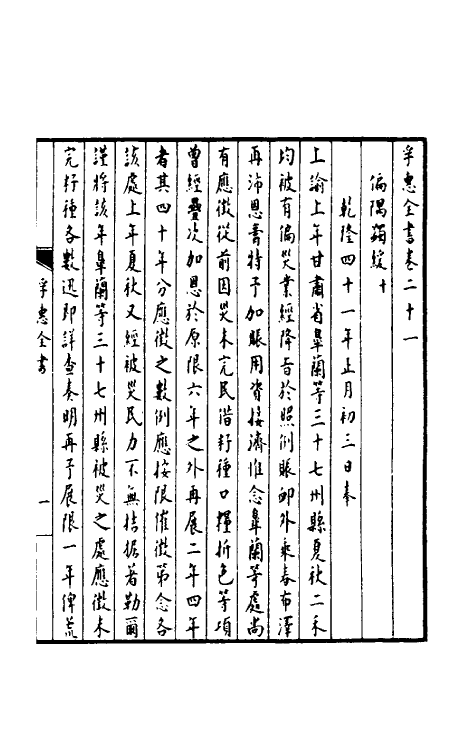 孚惠全書卷二十一
偏隅蠲緩十
乾隆四十一年正月初三日奉
上諭上年甘肅省臯蘭等三十七州縣夏秋二禾
均被有偏災業經降旨於照例賑卹外乘春布澤
再沛恩膏特予加賑用資接濟惟念臯蘭等處尚
有應徵從前因災未完民借籽種口糧折色等項
曾經疊次加恩於原限六年之外再展二年四年
者其四十年分應徵之數例應按限催徵第念各
該處上年夏秋又經被災民力不無拮据著勒爾
謹將該年臯蘭等三十七州縣被災之處應徵未
完籽種各數迅即詳查奏明再予展限一年俾荒
孚惠全書
一